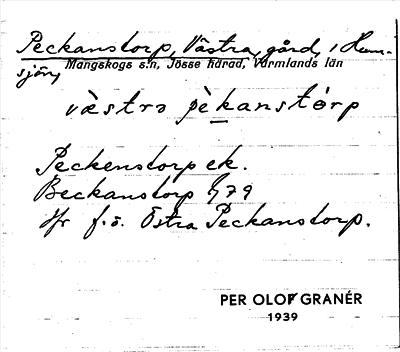 Peckanstorp, Västra, gård, i Hum-
sjön,
Mangskogs s:n, Jösse härad, Värmlands län
västra pèkanstórp
Peckenstorp ek.
Beckanstorp 79
Jfr f.ö. Östra Peckanstorp.
PER OLOF GRANÉR
1939